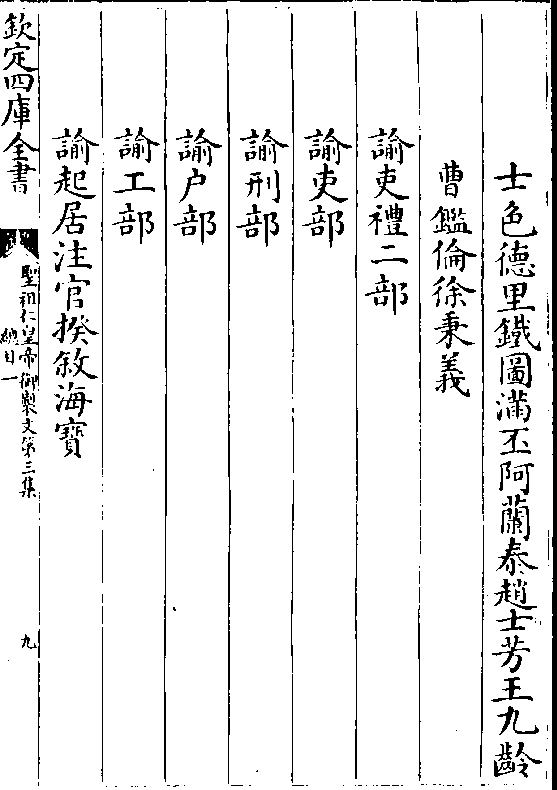 士色德里鐵圖滿丕阿蘭泰趙士芳王九齡
曹鑑倫徐秉義
諭吏禮二部
諭吏部
諭刑部
諭户部
諭工部
諭起居注官揆敘海寶
欽定四庫全書
聖祖仁皇帝御製文第三集
總目一
九